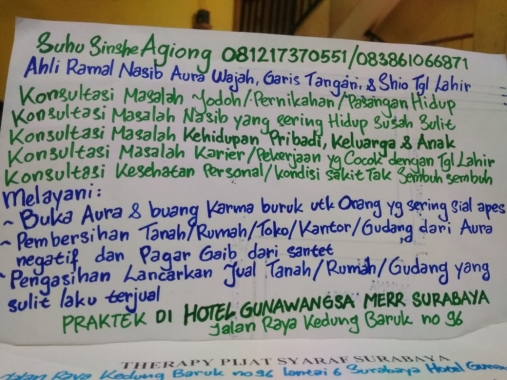 Suhu Sinshe Agiong 081217370551/083861066871
Ahli Ramal Nasib Aura Wajah, Garis Tangan, & Shio Tgl Lahir
Konsultasi Masalah Jodoh/Pernikahan/Pasangan Hidup
Konsultasi Masalah Nasib yang sering Hidup Susah Sulit
Konsultasi Masalah Kehidupan Pribadi, Keluarga & Anak
Konsultasi Masalah Karier/Pekerjaan yg Cocok dengan Tgl Lahir
Konsultasi Kesehatan Personal/Kondisi sakit Tak Sembuh sembuh
Melayani:
~ Buka Aura & buang Karma buruk utk Orang yg sering sial apes
~ Pembersihan Tanah/Rumah/Toko/Kantor/Gudang dari Aura
negatif dan Pagar Gaib dari santet
~ Pengasihan Lancarkan Jual Tanah/Rumah/Gudang yang
sulit laku terjual
PRAKTEK DI HOTEL GUNAWANGSA MERR SURABAYA
Jalan Raya Kedung Baruk no 96
THERAPY PIJAT SYARAF SURABAYA
Jalan Raya Kedung Baruk no 96 lantai 6 Surabaya Hotel